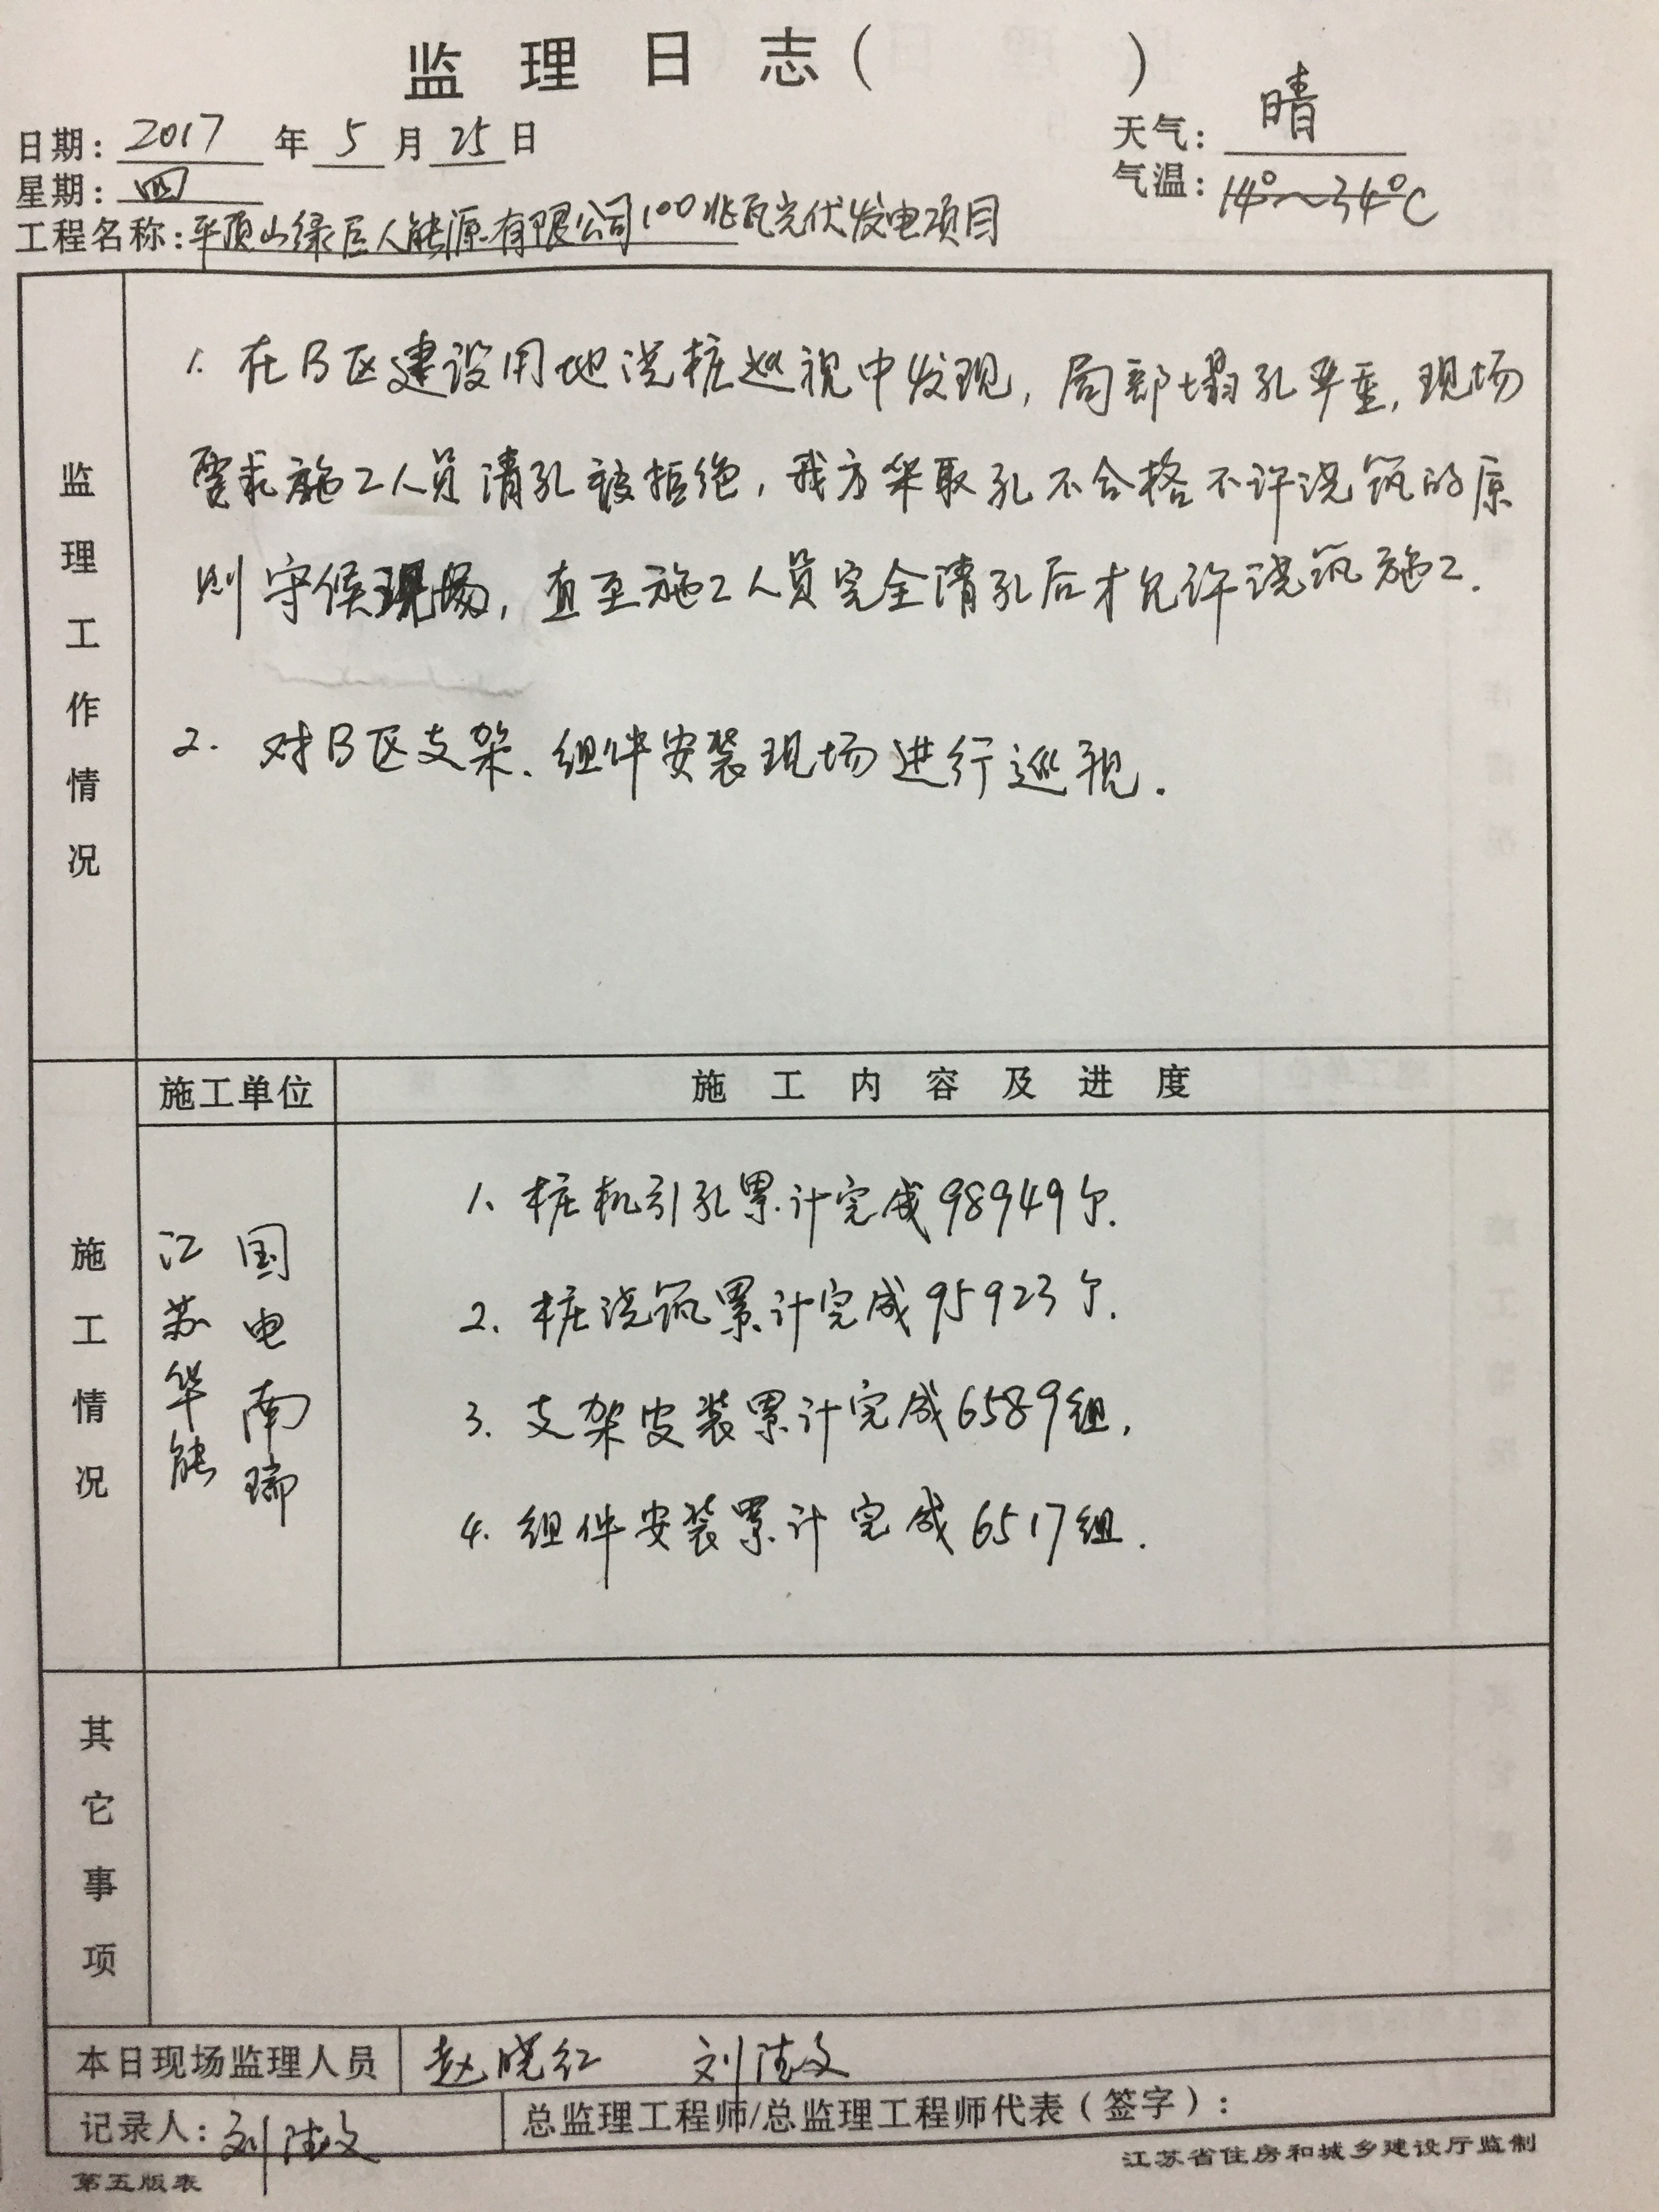 监理日志（ ）
日期：2017年5月25日
天气：晴
星期：四
气温：14°～34°C
工程名称：平顶山绿巨人能源有限公司100兆瓦光伏发电项目
监理工作情况
1. 在B区建设用地浇桩巡视中发现，局部塌孔严重，现场
要求施工人员清孔被拒绝，我方采取孔不合格不许浇筑的原
则守候现场，直至施工人员完全清孔后才允许浇筑施工.
2. 对B区支架、组件安装现场进行巡视.
施工情况
施工单位
施工内容及进度
国电南瑞
江苏华能
1、桩机引孔累计完成98949个.
2、桩浇筑累计完成95923个.
3、支架安装累计完成6589组.
4、组件安装累计完成6517组.
其它事项
本日现场监理人员 赵晓红 刘
记录人：刘
总监理工程师/总监理工程师代表（签字）：
第五版表
江苏省住房和城乡建设厅监制